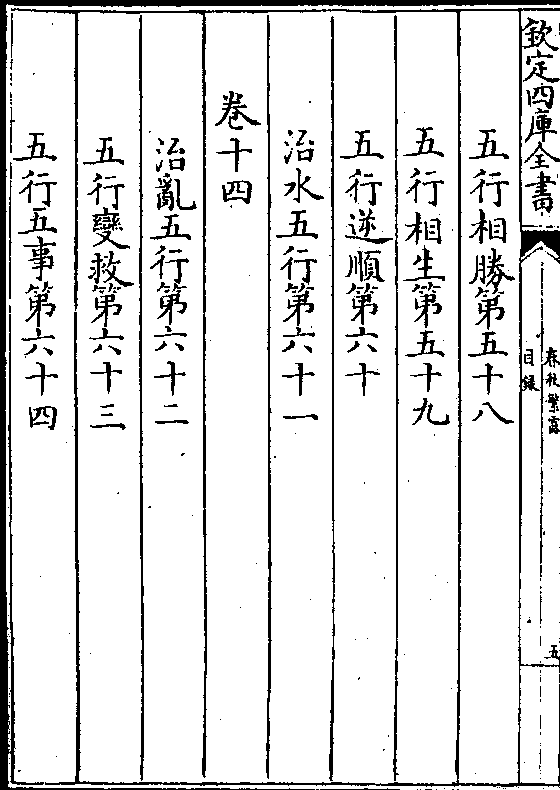 欽定四庫全書
春秋繁露
目錄
五
五行相勝第五十八
五行相生第五十九
五行逆順第六十
治水五行第六十一
卷十四
治亂五行第六十二
五行變救第六十三
五行五事第六十四